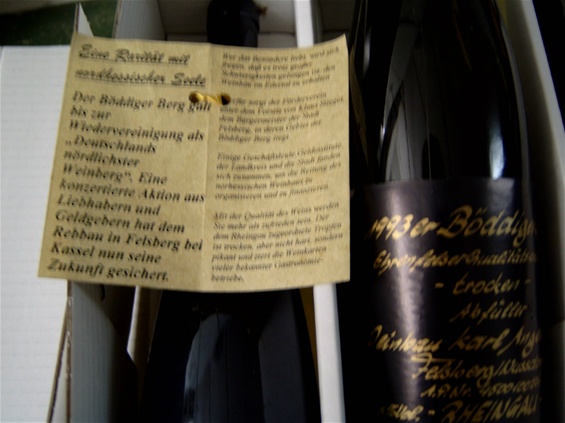 Eine Rarität mit
nordhessischer Seele
Der Böddiger Berg galt
bis zur
Wiedervereinigung als
„Deutschlands
nördlichster
Weinberg“. Eine
konzertierte Aktion aus
Liebhabern und
Geldgebern hat dem
Rebbau in Felsberg bei
Kassel nun seine
Zukunft gesichert.
Wer das Besondere liebt, wird sich
fragen, daß es trotz großer
Schwierigkeiten gelungen ist, den
Weinbau im Edertal zu erhalten
sorgt der Förderverein
unter dem Vorsitz von Klaus Stiegel,
dem Bürgermeister der Stadt
Felsberg, in deren Gebiet der
Böddiger Berg liegt.
Einige Geschäftsleute, Geldinstitute,
der Landkreis und die Stadt fanden
sich zusammen, um die Rettung des
norhessischen Weinbaus zu
organisieren und zu finanzieren.
Mit der Qualität des Weins werden
Sie mehr als zufrieden sein. Der
dem Rheingau zugeordnete Tropfen
ist trocken, aber nicht hart, sondern
pikant und ziert die Weinkarten
vieler bekannter Gastronomie-
betriebe.
1993er Böddiger
Ehrenfelser Qualitäts
- trocken -
Abfüller
Weinbau Karl Ange
Felsberg/
A.P.Nr.
- RHEINGAU